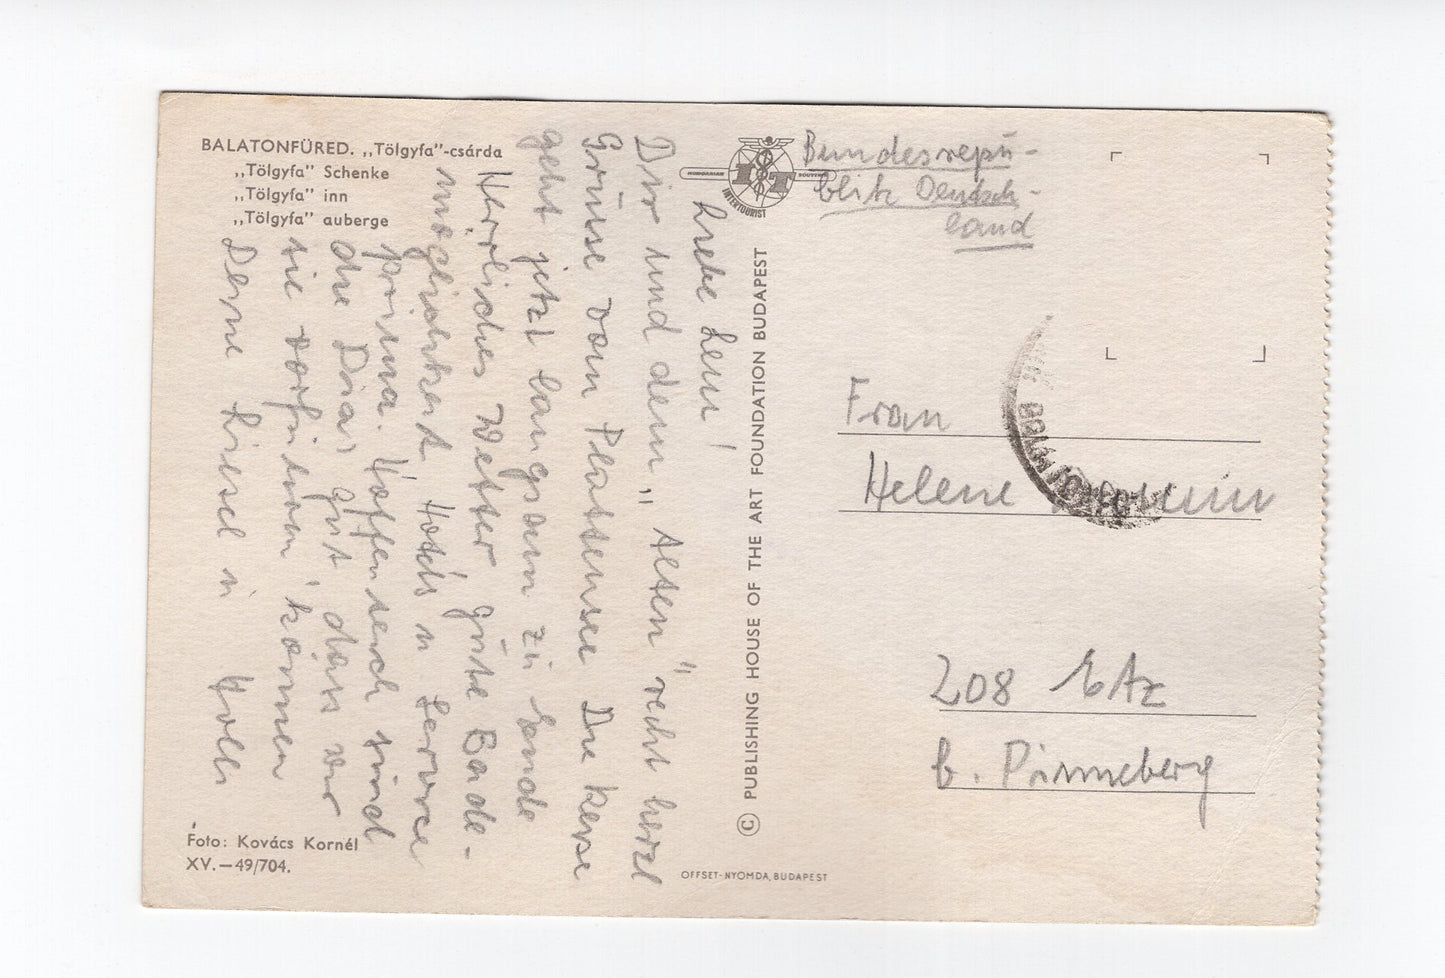 BALATONFÜRED. „Tölgyfa"-csárda
„Tölgyfa" Schenke
„Tölgyfa" inn
„Tölgyfa" auberge
Liebe Leni!
Dir und dem „Alten" recht herzl
Grüsse vom Plattensee Die Reise
geht jetzt langsam zu Ende
Herrliches Wetter gute Bade-
möglichkeit Hotels u Service
prima. Hoffentlich sind
die Dias gut, dass wir
sie vorführen können
Deine Liesel u
Foto: Kovács Kornél
XV.—49/704.
HUNGARIAN SOUVENIR
IT
INTERTOURIST
© PUBLISHING HOUSE OF THE ART FOUNDATION BUDAPEST
OFFSET-NYOMDA, BUDAPEST
Bundesrepu-
blik Deutsch-
land
Frau
Helene
208 Etz
b. Pinneberg